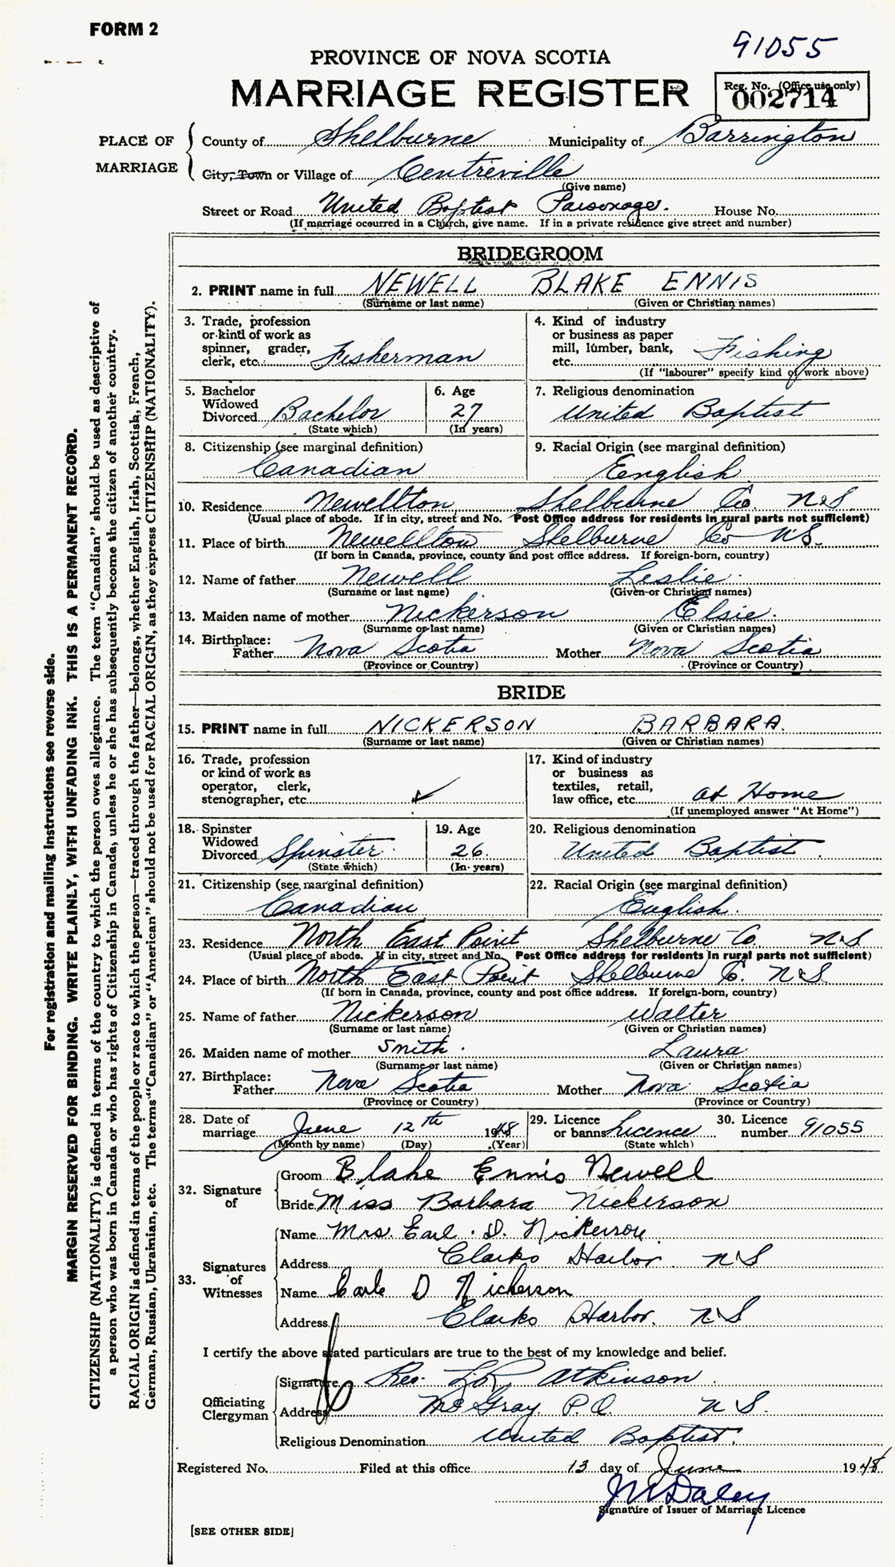 FORM 2
91055
PROVINCE OF NOVA SCOTIA
MARRIAGE REGISTER
Reg. No. (Office use only)
002714
PLACE OF MARRIAGE
County of Shelburne Municipality of Barrington
City, Town or Village of Centreville
(Give name)
Street or Road United Baptist Parsonage. House No.
(If marriage occurred in a Church, give name. If in a private residence give street and number)
BRIDEGROOM
2. PRINT name in full NEWELL BLAKE ENNIS
(Surname or last name) (Given or Christian names)
3. Trade, profession or kind of work as spinner, grader, clerk, etc. Fisherman
4. Kind of industry or business as paper mill, lumber, bank, etc. Fishing
(If "labourer" specify kind of work above)
5. Bachelor Widowed Divorced Bachelor
(State which)
6. Age 27
(In years)
7. Religious denomination
United Baptist
8. Citizenship (see marginal definition)
Canadian
9. Racial Origin (see marginal definition)
English
10. Residence Newellton Shelburne Co. N.S
(Usual place of abode. If in city, street and No. Post Office address for residents in rural parts not sufficient)
11. Place of birth Newellton Shelburne Co N.S.
(If born in Canada, province, county and post office address. If foreign-born, country)
12. Name of father Newell Leslie.
(Surname or last name) (Given or Christian names)
13. Maiden name of mother Nickerson Elsie.
(Surname or last name) (Given or Christian names)
14. Birthplace:
Father Nova Scotia Mother Nova Scotia
(Province or Country) (Province or Country)
BRIDE
15. PRINT name in full NICKERSON BARBARA.
(Surname or last name) (Given or Christian names)
16. Trade, profession or kind of work as operator, clerk, stenographer, etc. ✓
17. Kind of industry or business as textiles, retail, law office, etc. at Home
(If unemployed answer "At Home")
18. Spinster Widowed Divorced Spinster.
(State which)
19. Age 26.
(In years)
20. Religious denomination
United Baptist.
21. Citizenship (see marginal definition)
Canadian
22. Racial Origin (see marginal definition)
English.
23. Residence North East Point Shelburne Co. N.S
(Usual place of abode. If in city, street and No. Post Office address for residents in rural parts not sufficient)
24. Place of birth North East Point Shelburne Co. N.S.
(If born in Canada, province, county and post office address. If foreign-born, country)
25. Name of father Nickerson Walter
(Surname or last name) (Given or Christian names)
26. Maiden name of mother Smith. Laura
(Surname or last name) (Given or Christian names)
27. Birthplace:
Father Nova Scotia Mother Nova Scotia
(Province or Country) (Province or Country)
28. Date of marriage June 12th 1948
(Month by name) (Day) (Year)
29. Licence or banns Licence
(State which)
30. Licence number 91055
32. Signature of
Groom Blake Ennis Newell
Bride Miss Barbara Nickerson
33. Signatures of Witnesses
Name Mrs. Earl. D. Nickerson
Address Clarks Harbor N S
Name Earle D Nickerson
Address Clarks Harbor. N S
I certify the above stated particulars are true to the best of my knowledge and belief.
Officiating Clergyman
Signature Rev. Atkinson
Address McGray P.O. N S.
Religious Denomination United Baptist.
Registered No. Filed at this office 13 day of June 1948
J M Daley
Signature of Issuer of Marriage Licence
[SEE OTHER SIDE]
For registration and mailing instructions see reverse side.
MARGIN RESERVED FOR BINDING. WRITE PLAINLY, WITH UNFADING INK. THIS IS A PERMANENT RECORD.
CITIZENSHIP (NATIONALITY) is defined in terms of the country to which the person owes allegiance. The term "Canadian" should be used as descriptive of
a person who was born in Canada or who has rights of Citizenship in Canada, unless he or she has subsequently become the citizen of another country.
RACIAL ORIGIN is defined in terms of the people or race to which the person—traced through the father—belongs, whether English, Irish, Scottish, French,
German, Russian, Ukrainian, etc. The terms "Canadian" or "American" should not be used for RACIAL ORIGIN, as they express CITIZENSHIP (NATIONALITY).